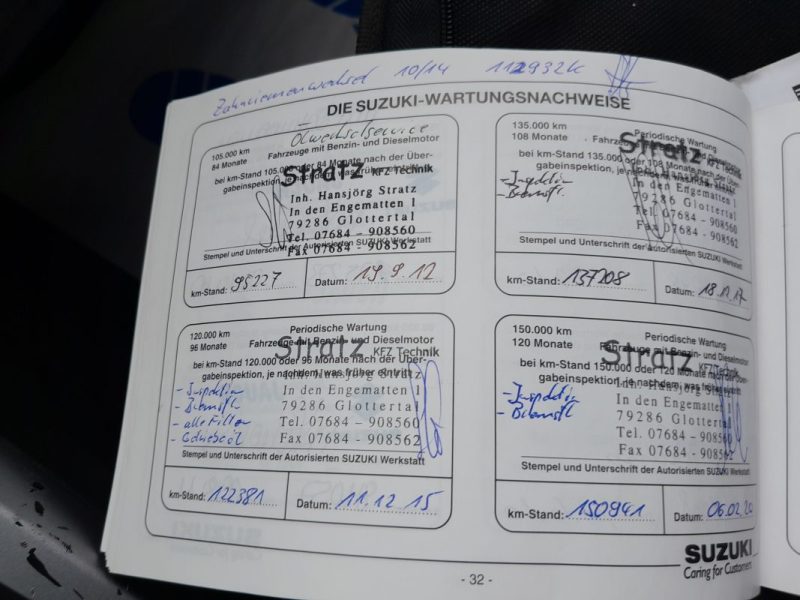 Zahnriemenwechsel 10/14 112932k
DIE SUZUKI-WARTUNGSNACHWEISE
Ölwechselservice
105.000 km
84 Monate
Fahrzeuge mit Benzin- und Dieselmotor
bei km-Stand 105.000 oder 84 Monate nach der Über-
gabeinspektion, je nachdem, was früher eintritt
Stratz KFZ Technik
Inh. Hansjörg Stratz
In den Engematten 1
79286 Glottertal
Tel. 07684 - 908560
Fax 07684 - 908562
Stempel und Unterschrift der Autorisierten SUZUKI Werkstatt
km-Stand: 95227
Datum: 19.9.12
120.000 km
96 Monate
Periodische Wartung
Fahrzeuge mit Benzin- und Dieselmotor
bei km-Stand 120.000 oder 96 Monate nach der Über-
gabeinspektion, je nachdem, was früher eintritt
Stratz KFZ Technik
Inh. Hansjörg Stratz
In den Engematten 1
79286 Glottertal
Tel. 07684 - 908560
Fax 07684 - 908562
- Inspektion
- Bremsfl.
- alle Filter
- Getriebeöl
Stempel und Unterschrift der Autorisierten SUZUKI Werkstatt
km-Stand: 122381
Datum: 11.12.15
135.000 km
108 Monate
Periodische Wartung
Fahrzeuge mit Benzin- und Dieselmotor
bei km-Stand 135.000 oder 108 Monate nach der Über-
gabeinspektion, je nachdem, was früher eintritt
Stratz KFZ Technik
Inh. Hansjörg Stratz
In den Engematten 1
79286 Glottertal
Tel. 07684 - 908560
Fax 07684 - 908562
- Inspektion
- Bremsfl.
Stempel und Unterschrift der Autorisierten SUZUKI Werkstatt
km-Stand: 137208
Datum: 18.12.17
150.000 km
120 Monate
Periodische Wartung
Fahrzeuge mit Benzin- und Dieselmotor
bei km-Stand 150.000 oder 120 Monate nach der Über-
gabeinspektion, je nachdem, was früher eintritt
Stratz KFZ Technik
Inh. Hansjörg Stratz
In den Engematten 1
79286 Glottertal
Tel. 07684 - 908560
Fax 07684 - 908562
- Inspektion
- Bremsfl
Stempel und Unterschrift der Autorisierten SUZUKI Werkstatt
km-Stand: 150941
Datum: 06.02.20
SUZUKI
Caring for Customers
- 32 -